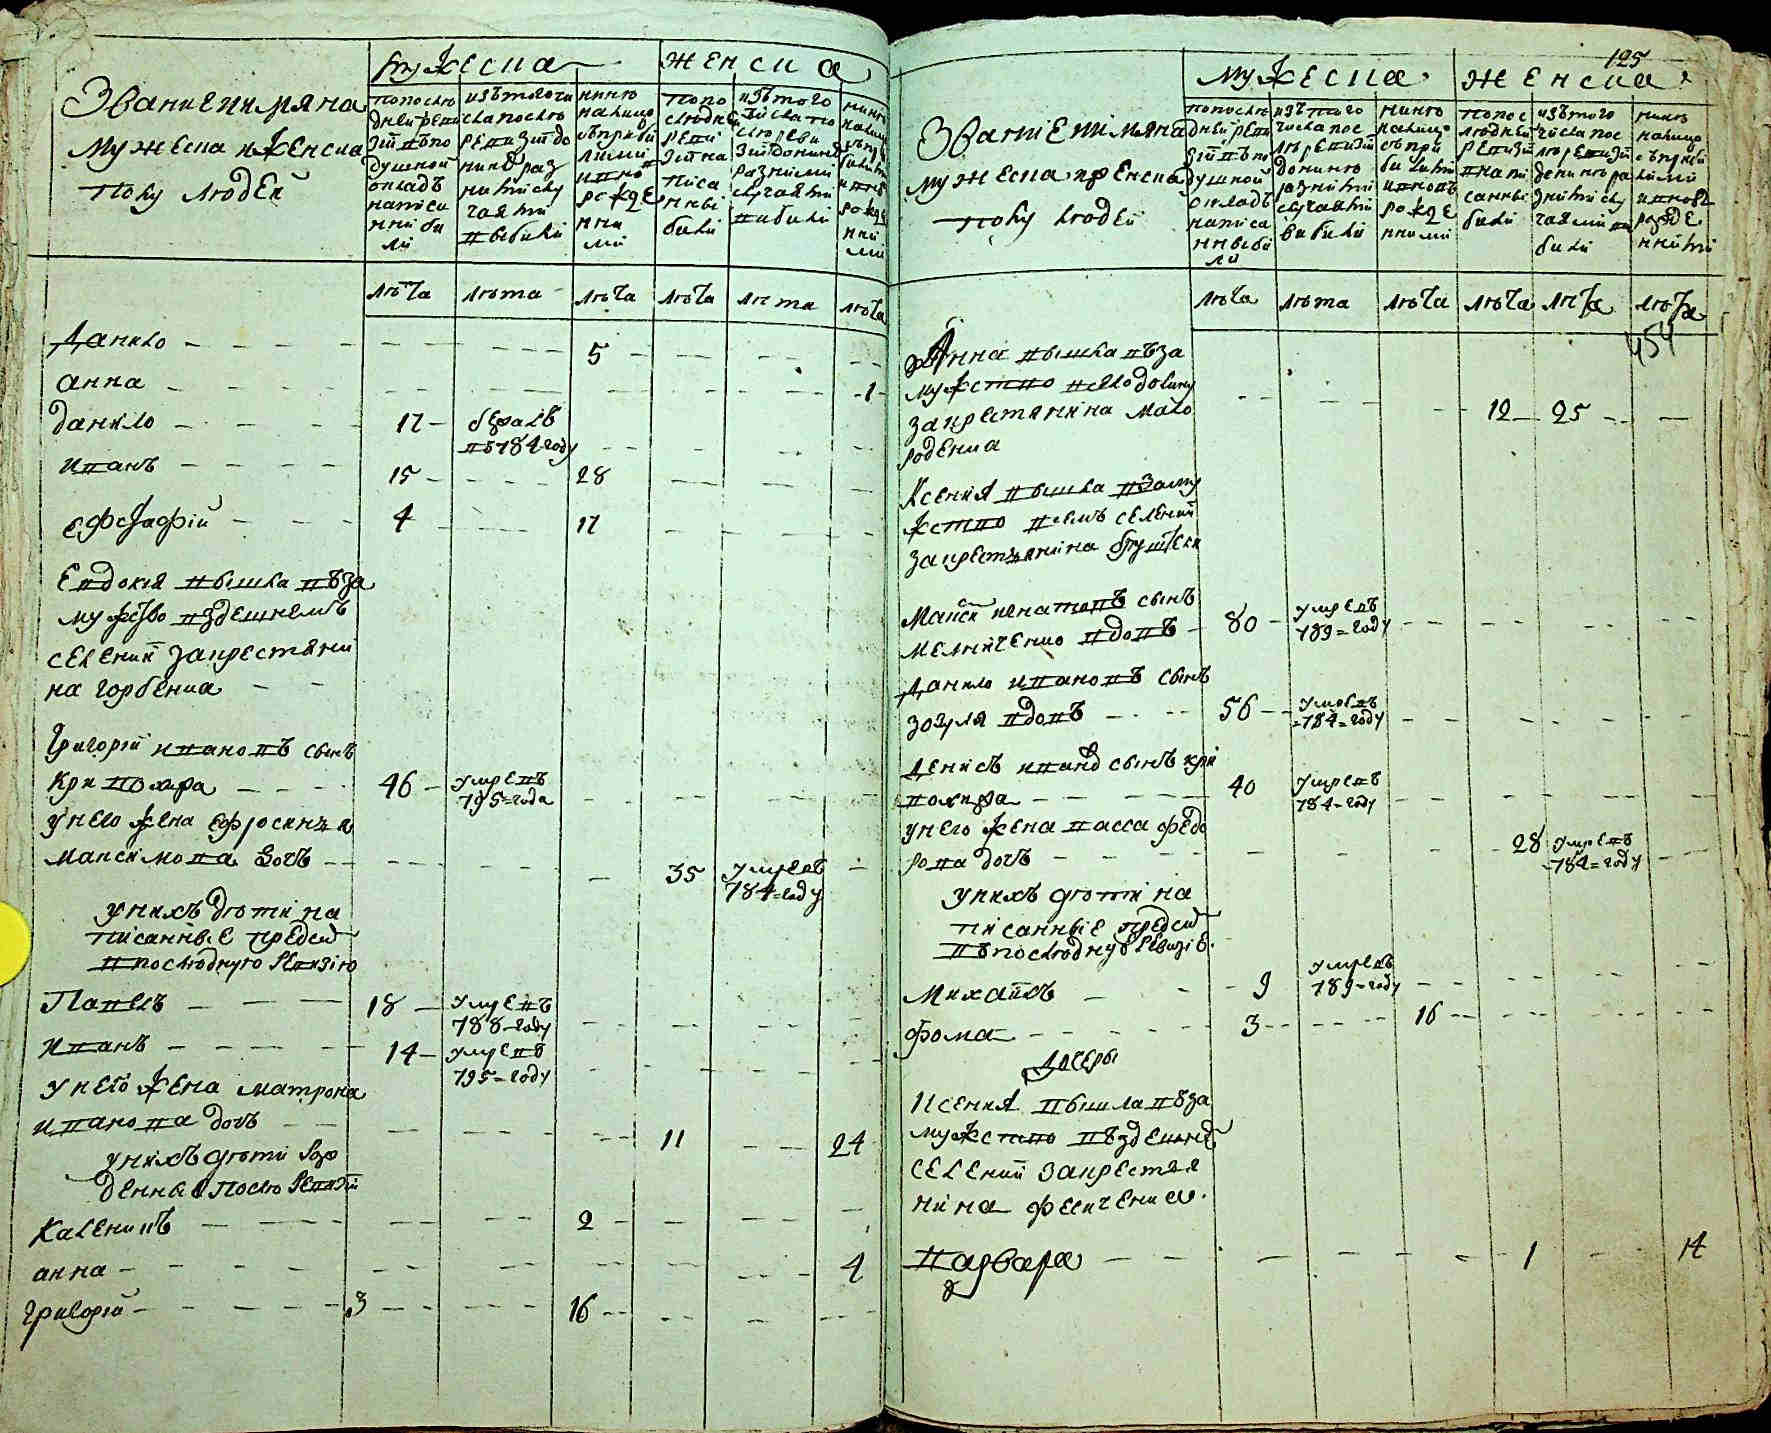 Звание имяна
мужеска и женска
полу людей
мужеска
женска
по последней ревизии въ подушной окладъ написанни были
изъ того числа после ревизии до ныне разними случаями выбили
ныне налицо съ прибилими и вновь рожденними
по последней ревизии написанны были
изъ того числа после ревизии до ныне разними случаями выбили
ныне налицо съ прибилими и вновь рожденними
лета лета лета лета лета лета
Данило 5
анна 1
данило 17
въ 784 году
иванъ 15 28
ефстафий 4 17
Евдокия вышла въ за
мужство в здешнемъ
селении за крестяни
на горбенка
Григорий ивановъ сынъ
кривохижа 46 умревъ
795 года
у него жена ефросинья
максимова дочь 35 умревъ
784 году
у нихъ дети на
писанные пред сим
в последную ревизию
Павелъ 18 умревъ
788 году
иванъ 14 умревъ
795 году
у него жена матрона
иванова дочь 11 24
у нихъ дети рож
денные после ревизии
Каленикъ 2
анна 4
григорий 3 16
125
Звание имяна
мужеска и женска
полу людей
мужеска
женска
по последней ревизии въ подушной окладъ написанны были
изъ того числа после ревизии до ныне разними случаями вибили
ныне налицо съ прибилими и вновь рожденними
по последней ревизии написанны были
изъ того числа после ревизии до ныне разними случаями вибили
ныне налицо съ прибилими и вновь рожденними
лета лета лета лета лета лета
454
Анна вышла въ за
мужство
за крестянина мало
роденка 12 25
Ксения вышла в заму
жство в семъ селении
за крестьянина
сынъ
мелниченко вдовъ 80 умревъ
789 году
Данило ивановъ сынъ
зозуля вдовъ 56 умревъ
784 году
Денисъ иванов сынъ кри
вохижа 40 умревъ
784 году
у него жена васса федо
рова дочь 28 умревъ
784 году
у нихъ дети на
писанные пред сим
въ последную ревизию
Михайло 9 умревъ
789 году
фома 3 16
дочеры
Ксения вышла въ за
мужство въ здешнем
селении за крестья
нина
Варвара 1 14